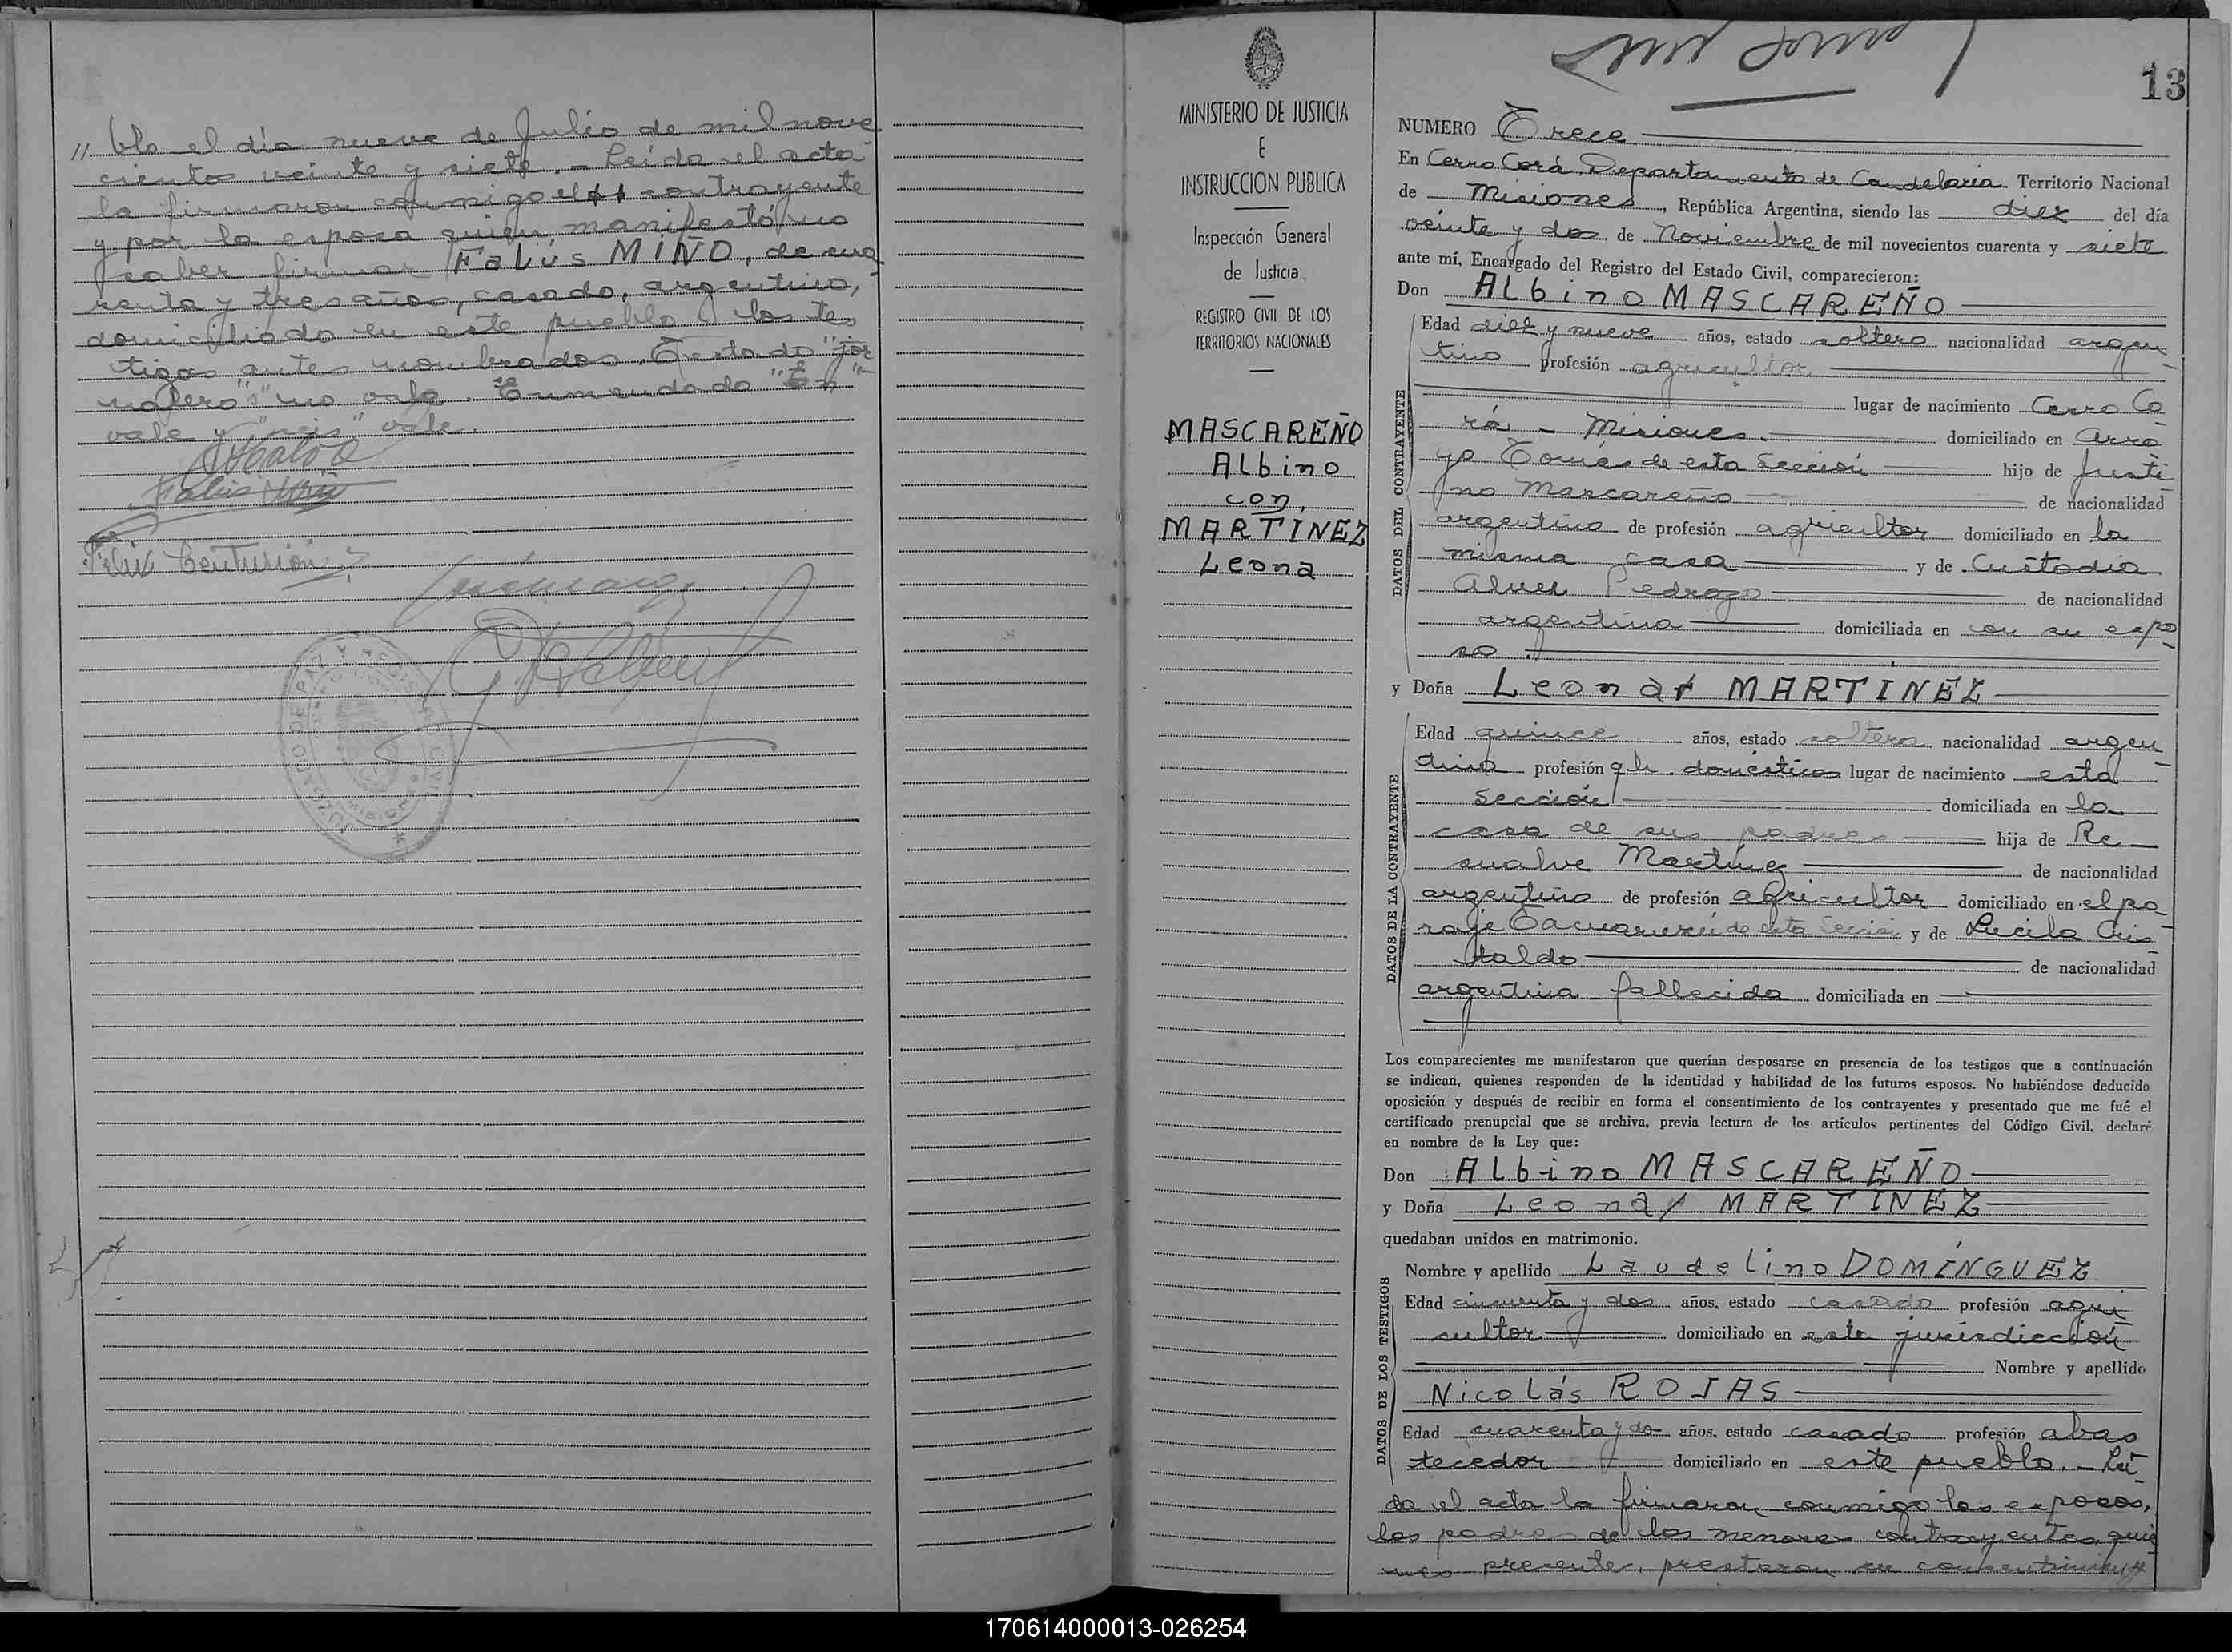 // blo el día nueve de Julio de mil nove
cientos veinte y siete. - Leída el acta
la firmaron conmigo el contrayente
y por la esposa quien manifestó no
saber firmar Fabús MIÑO, de cua
renta y tres años, casado, argentino,
domiciliado en este pueblo y los tes
tigos antes nombrados. Testado "jor
nalero" "s" no vale. Enmendado "En"
vale y "neis" vale.
Felix Centurión
JUZGADO DE PAZ Y REGISTRO CIVIL
MINISTERIO DE JUSTICIA
E
INSTRUCCION PUBLICA
Inspección General
de Justicia
REGISTRO CIVIL DE LOS
TERRITORIOS NACIONALES
MASCAREÑO
Albino
con
MARTÍNEZ
Leona
13
NUMERO Trece
En Cerro Corá, Departamento de Candelaria Territorio Nacional
de Misiones, República Argentina, siendo las diez del día
veinte y dos de Noviembre de mil novecientos cuarenta y siete
ante mí, Encargado del Registro del Estado Civil, comparecieron:
Don Albino MASCAREÑO
DATOS DEL CONTRAYENTE
Edad diez y nueve años, estado soltero nacionalidad argen
tino profesión agricultor
lugar de nacimiento Cerro Co
rá - Misiones - domiciliado en Arro
yo Tomás de esta Sección hijo de Justi
no Mascareño de nacionalidad
argentino de profesión agricultor domiciliado en la
misma casa y de Custodia
Alvez Pedrozo de nacionalidad
argentina domiciliada en con su espo
so.
y Doña Leona MARTÍNEZ
DATOS DE LA CONTRAYENTE
Edad quince años, estado soltera nacionalidad argen
tina profesión q.h. domésticos lugar de nacimiento esta
Sección domiciliada en la
casa de sus padres hija de Re
sualve Martínez de nacionalidad
argentino de profesión agricultor domiciliado en el pa
raje Tacuaruzú de esta Sección y de Lucila Cris
taldo de nacionalidad
argentina fallecida domiciliada en
Los comparecientes me manifestaron que querían desposarse en presencia de los testigos que a continuación
se indican, quienes responden de la identidad y habilidad de los futuros esposos. No habiéndose deducido
oposición y después de recibir en forma el consentimiento de los contrayentes y presentado que me fué el
certificado prenupcial que se archiva, previa lectura de los artículos pertinentes del Código Civil, declaré
en nombre de la Ley que:
Don Albino MASCAREÑO
y Doña Leona MARTÍNEZ
quedaban unidos en matrimonio.
DATOS DE LOS TESTIGOS
Nombre y apellido Laudelino DOMÍNGUEZ
Edad cincuenta y dos años, estado casado profesión agri
cultor domiciliado en esta jurisdicción
Nombre y apellido
Nicolás ROJAS
Edad cuarenta y do años, estado casado profesión abas
tecedor domiciliado en este pueblo. - Leí
da el acta la firmaron conmigo los esposos,
los padres de los menores contrayentes quie
nes presente, prestaron su consentimient
170614000013-026254